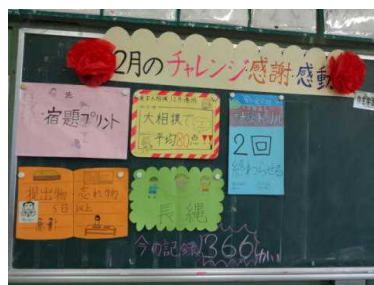 2月のチャレンジ・感謝・感動
宿題プリント
大相撲で
平均80点!!
2回
終わらせる
提出物 忘れ物
5日以上
長縄
今の記録
366かい